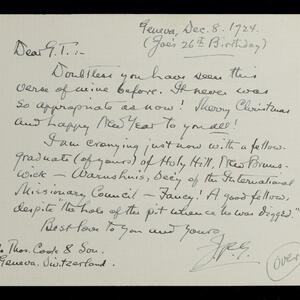 Geneva, Dec. 8. 1924.
(Joe's 26th Birthday)
Dear G.T.:-
Doubtless you have seen this
verse of mine before. It never was
so appropriate as now! Merry Christmas
and happy New Year to you all!
I am cranjing just now with a fellow-
graduate (of yours) of Holy Hill, New Bruns-
wick - Warnshuis, Sec'y of the International
Missionary Council - Fancy! A good fellow,
despite "the hole of the pit whence he was digged."
Best love to you and yours,
Thos. Cook & Son.
Geneva. Switzerland.
over